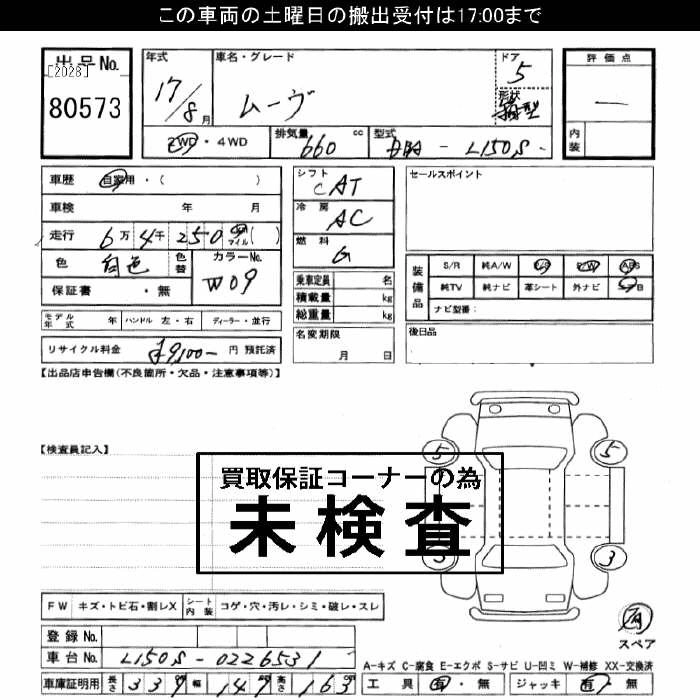 この車両の土曜日の搬出受付は17:00まで
出品No.
[2028]
80573
年式
17/8月
車名・グレード
ムーヴ
ドア
5
形状
箱型
評価点
―
内装
2WD・4WD
排気量
660 cc
型式
DBA - L150S
車歴 自家用・( )
車検 年 月
走行 6万4千250 km マイル( )
色 白色 色替 カラーNo. W09
保証書 ・無
モデル年式 年 ハンドル 左・右 ディーラー・並行
リサイクル料金 ¥9,100- 円 預託済
シフト CAT
冷房 AC
燃料 G
乗車定員 名
積載量 kg
総重量 kg
名変期限
月 日
セールスポイント
装備品
S/R 純A/W P/S P/W ABS
純TV 純ナビ 革シート 外ナビ エアB
ナビ型番:
後日品
【出品店申告欄(不良箇所・欠品・注意事項等)】
【検査員記入】
買取保証コーナーの為
未検査
5 5
3 3
FW キズ・トビ石・割レX シート内装 コゲ・穴・汚レ・シミ・破レ・スレ
有
スペア
登録No.
車台No. L150S-0226531
車庫証明用 長さ 339 幅 147 高さ 163
A-キズ C-腐食 E-エクボ S-サビ U-凹ミ W-補修 XX-交換済
工具 有・無 ジャッキ 有・無